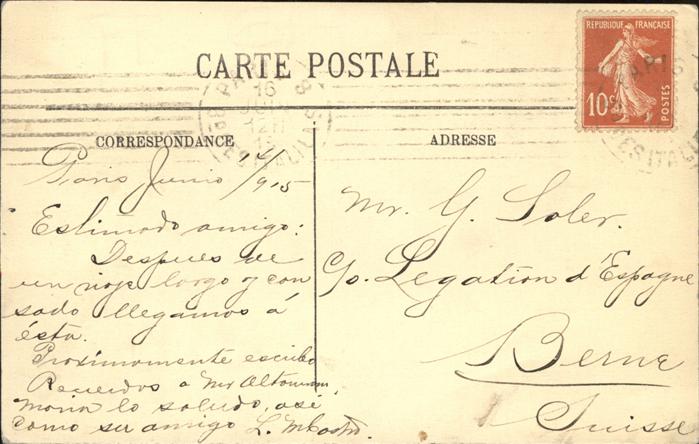 CARTE POSTALE
REPUBLIQUE FRANÇAISE
10c
POSTES
PARIS
16
BD DES ITALIENS
CORRESPONDANCE
Paris Junio 14/915
Estimado amigo:
Despues de
un viaje largo y can
sado llegamos á
ésta.
Proximamente escribo
Recuerdos a Mr
Maria lo saluda, asi
como su amigo L.
ADRESSE
Mr. G. Soler.
c/o. Legation d'Espagne
Berne
Suisse